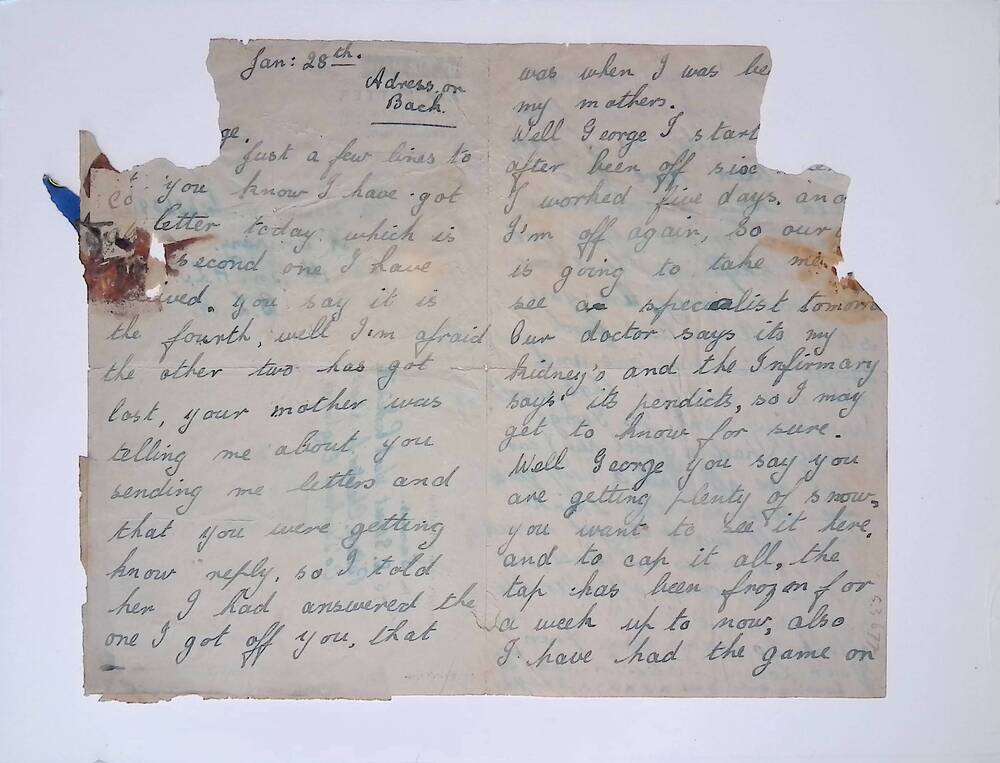 Jan: 28th.
Adress on
Back.
ge.
Just a few lines to
you know I have got
letter today which is
second one I have
ived, you say it is
the fourth, well I'm afraid
the other two has got
lost, your mother was
telling me about you
sending me letters and
that you were getting
know reply, so I told
her I had answered the
one I got off you, that
was when I was be
my mothers.
Well George I start
after been off six
I worked five days. and
I'm off again, so our
is going to take me
see a specialist tomorro
Our doctor says its my
kidney's and the Infirmary
says' its pendicts, so I may
get to know for sure.
Well George you say you
are getting plenty of snow,
you want to see it here,
and to cap it all, the
tap has been frozen for
a week up to now, also
I have had the game on